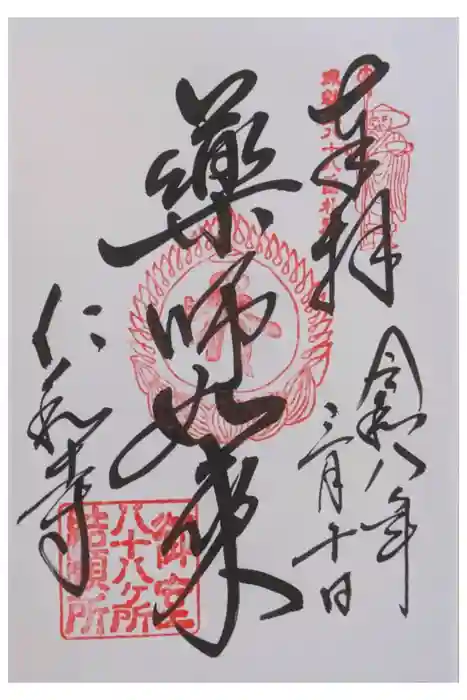 奉拝
令和八年
三月十日
薬師如来
仁和寺
御室
八十八ヶ所
結願所